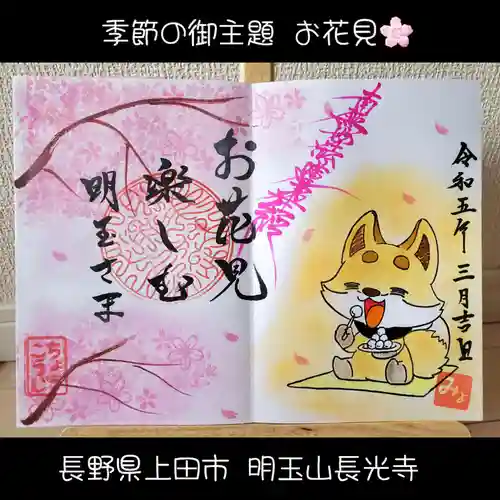 季節の御主題 お花見🌸
お花見
楽しむ
明玉さま
令和五年 三月吉日
みょ
長野県上田市 明玉山長光寺